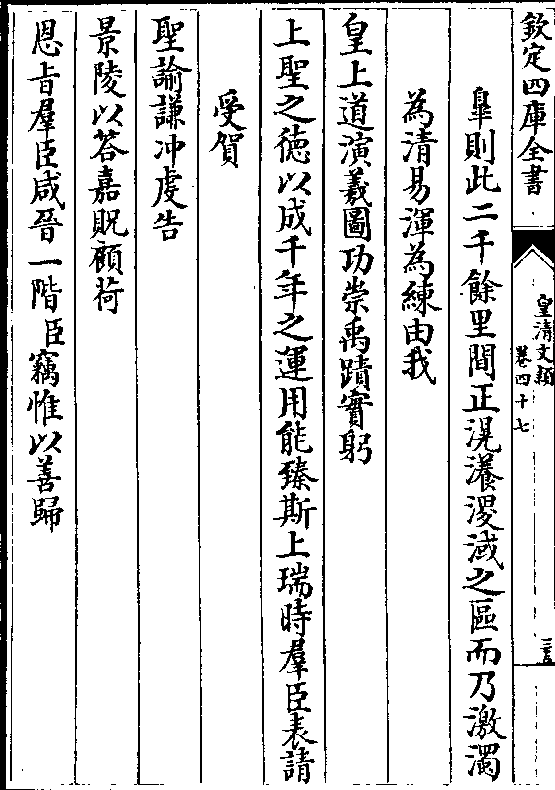 欽定四庫全書
皇清文穎
卷四十七
皐則此二千餘里間正滉瀁濅淢之區而乃激濁
為清易渾為練由我
皇上道演羲圖功崇禹蹟實躬
上聖之徳以成千年之運用能臻斯上瑞時羣臣表請
受賀
聖諭謙冲虔告
景陵以答嘉貺顧荷
恩旨羣臣咸晉一階臣竊惟以善歸